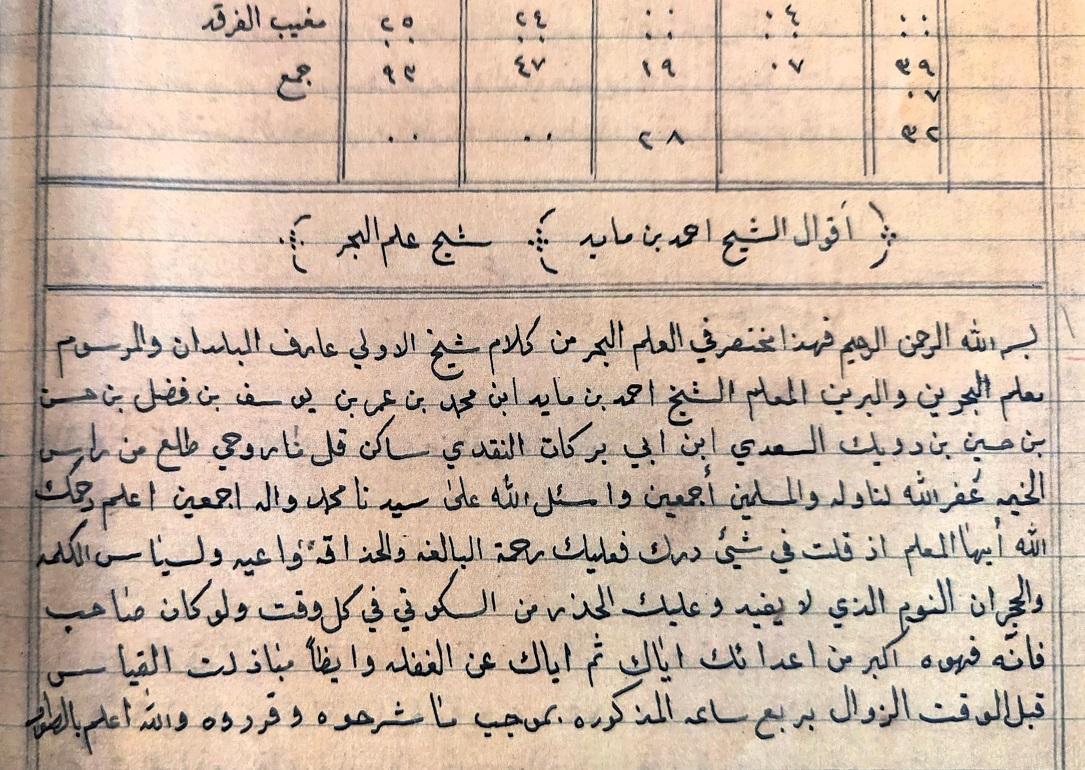 مغيب الفرقد ٢٥ ٢٤ ٠٠ ٠٤ ٠٠
جمع ٩٣ ٤٧ ١٩ ٠٧ ٣٩
٠٧
٠٠ ٠٠ ٢٨ ٣٢
أقوال الشيخ احمد بن مايد شيخ علم البحر
بسم الله الرحمن الرحيم فهذا مختصر في العلم البحر من كلام شيخ الاولي عارف البلدان والمرسوم
معلم البحرين والبرين المعلم الشيخ احمد بن مايد ابن محمد بن عمر بن يوسف بن فضل بن حسن
بن حسين بن دويك السعدي ابن ابي بركات النقدي ساكن طلع من راس
الخيمه غفر الله لنا وله والمسلمين أجمعين واسئل الله على سيدنا محمد واله اجمعين اعلم رحمك
الله أيها المعلم اذ قلت في شيئ درك فعليك رحمة البالغه والحذاقه واعيه الكلمه
والحجران النوم الذي لا يفيد وعليك الحذر من السكوني في كل وقت ولو كان صاحب
فانه فهوه اكبر من اعدائك اياك ثم اياك عن الغفله وايظاً القياس
قبل الوقت الزوال بربع ساعه المذكوره بموجب ما شرحوه وقرروه والله اعلم